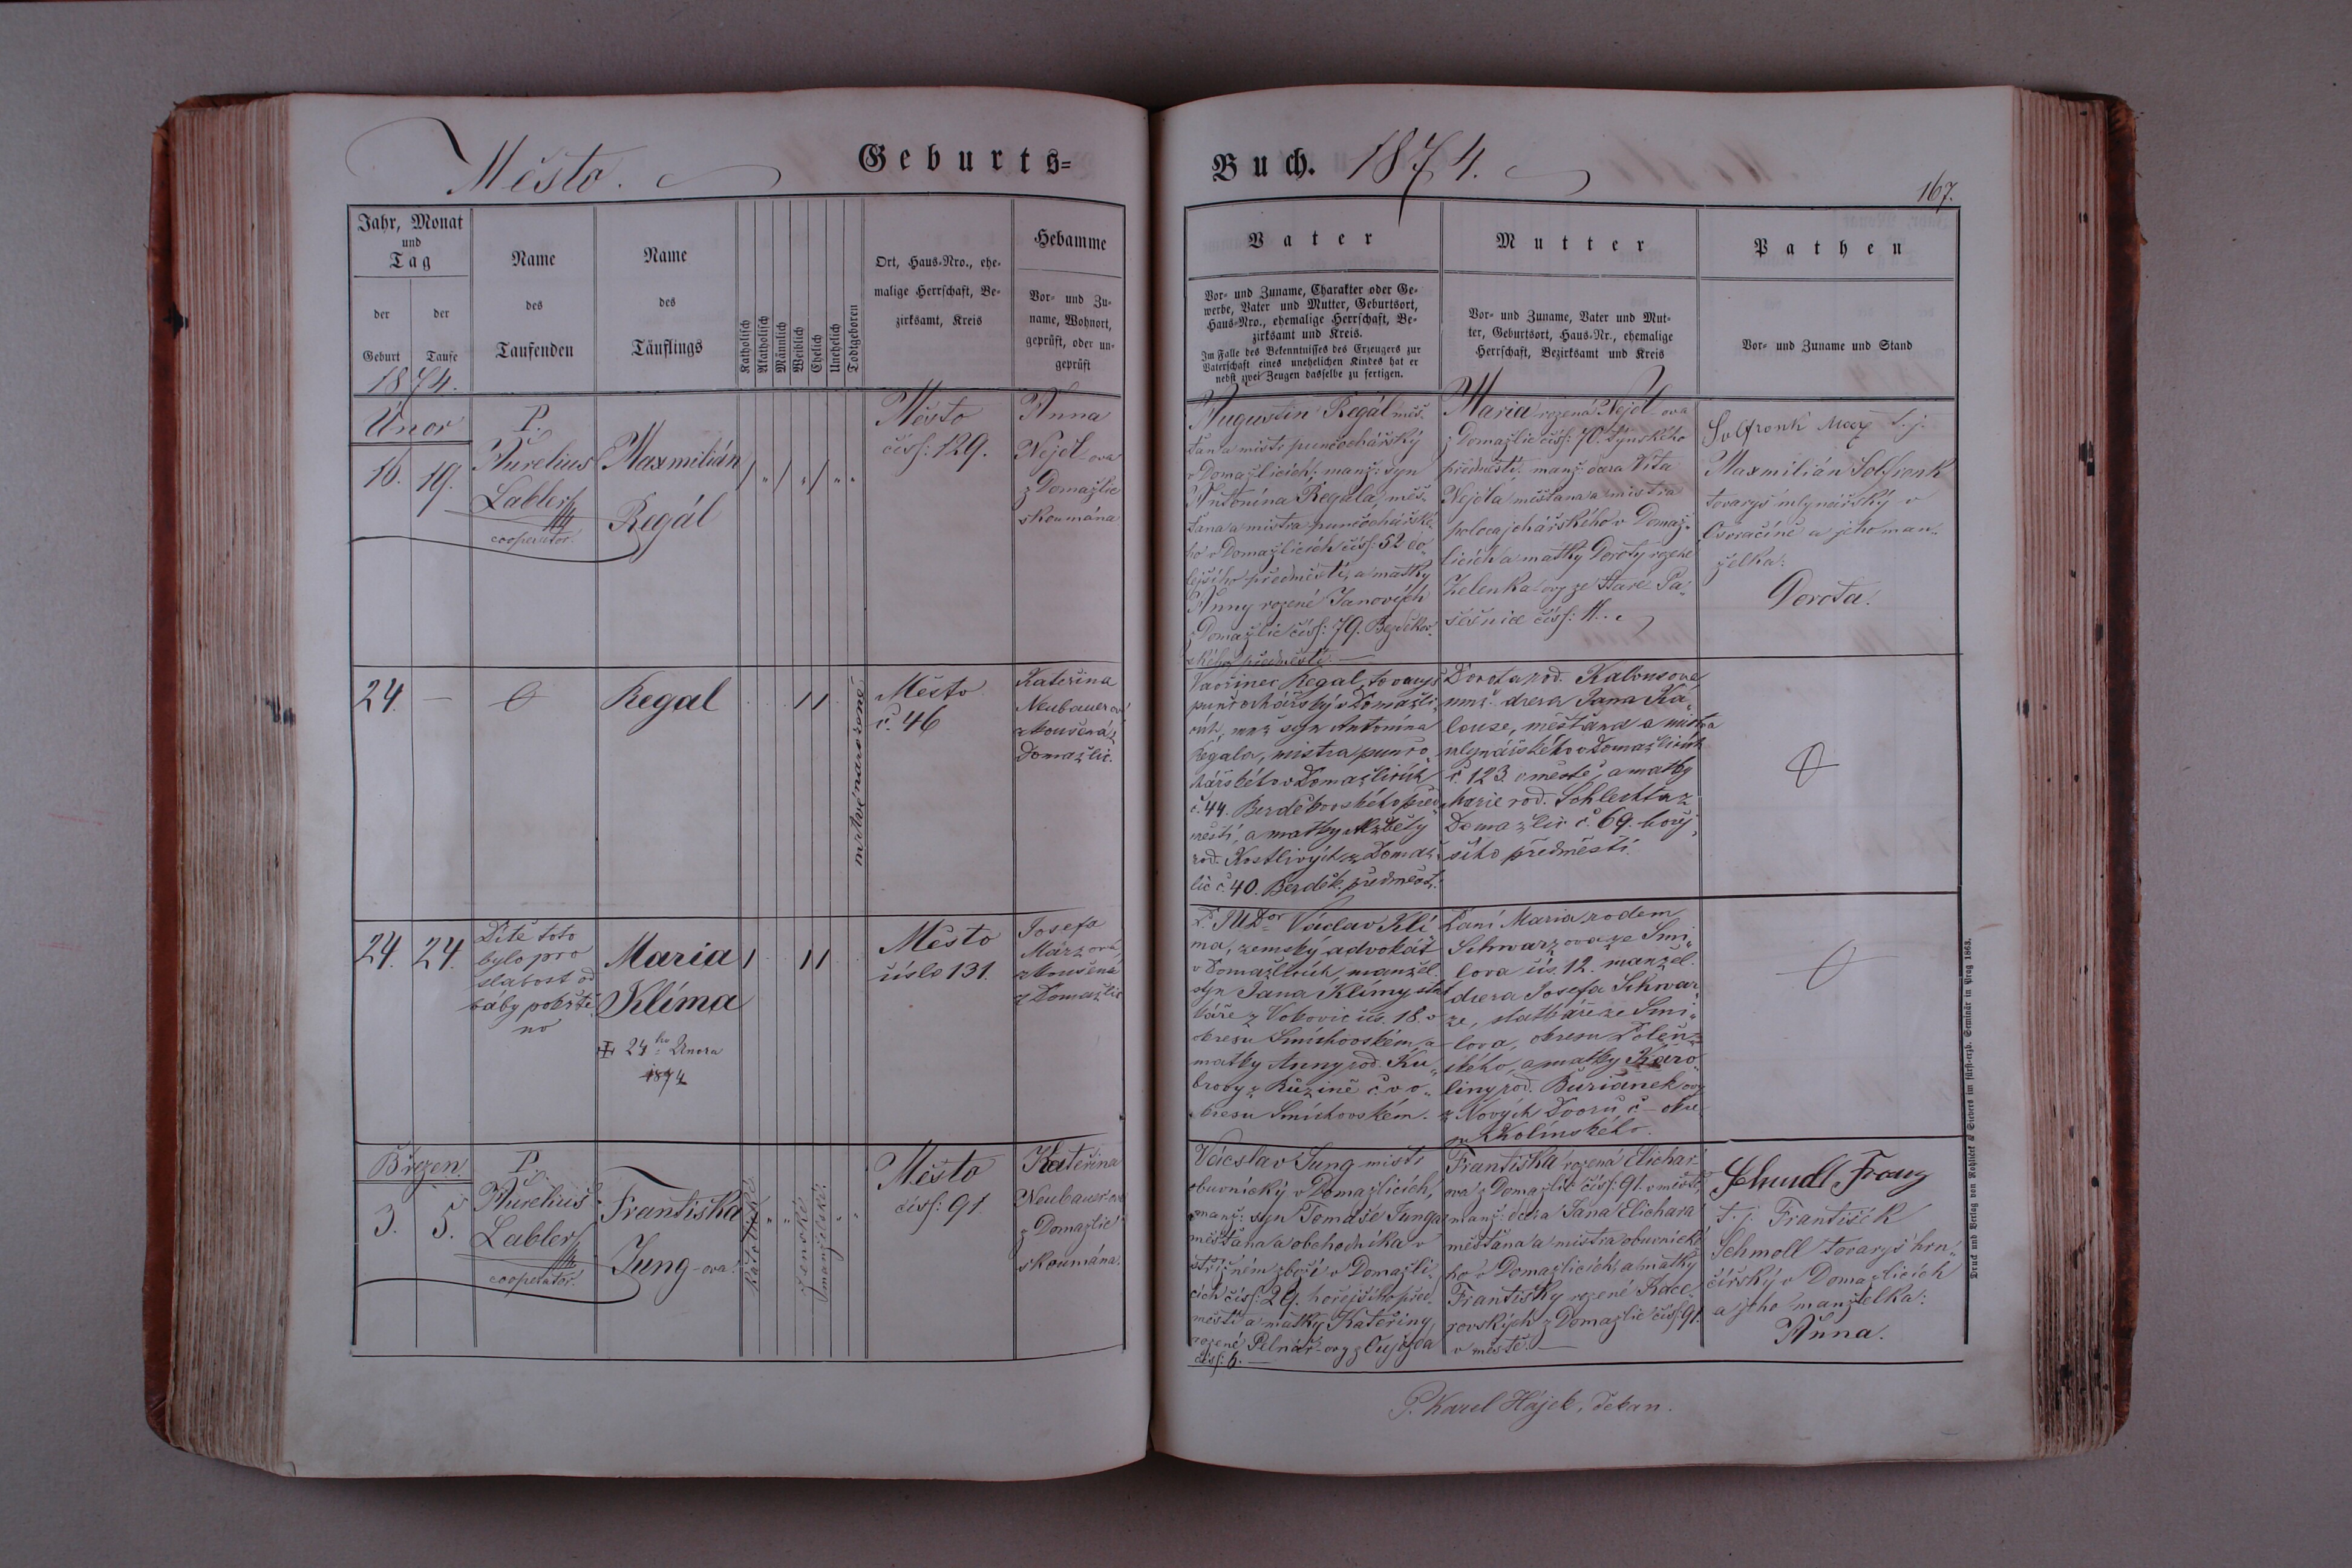 Město.
Geburts=
Buch. 1874.
167.
Jahr, Monat
und
Tag
der
Geburt
der
Taufe
1874.
Name
des
Taufenden
Name
des
Täuflings
Katholisch
Akatholisch
Männlich
Weiblich
Ehelich
Unehelich
Todtgeboren
Ort, Haus-Nro., ehe-
malige Herrschaft, Be-
zirksamt, Kreis
Hebamme
Vor- und Zu-
name, Wohnort,
geprüft, oder un-
geprüft
Vater
Vor- und Zuname, Charakter oder Ge-
werbe, Vater und Mutter, Geburtsort,
Haus-Nro., ehemalige Herrschaft, Be-
zirksamt und Kreis.
Im Falle des Bekenntnisses des Erzeugers zur
Vaterschaft eines unehelichen Kindes hat er
nebst zwei Zeugen dasselbe zu fertigen.
Mutter
Vor- und Zuname, Vater und Mut-
ter, Geburtsort, Haus-Nr., ehemalige
Herrschaft, Bezirksamt und Kreis
Pathen
Vor- und Zuname und Stand
Únor
16. 19.
P.
Aurelius
Labler
cooperator.
Maxmilián
Regál
Město
čísl: 129.
Anna
Nejdl-ova
z Domažlic
skoumána
Augustin Regál měš-
ťan a mistr punčochářský
v Domažlicích, manž: syn
Antonína Regála, měš-
ťana a mistra punčochářské-
ho v Domažlicích čísl: 52 do-
lejšího předměstí, a matky
Anny rozené Janových
z Domažlic čísl: 79. Bezděkov-
ského předměstí.
Maria rozená Nejdl-ova
z Domažlic čísl: 70. týnského
předměstí, manž. dcera Víta
Nejdla měšťana a mistra
v Domaž-
licích a matky Doroty rozené
Zelenka-ovy ze Staré Pa-
sečnice čísl: 11.
Solfronk Max t. j.
Maxmilián Solfronk
tovaryš mlynářský v
a jeho man-
želka:
Dorota.
24. —
Regal
mrtvě narozené
Město
č. 46
Kateřina
Neubauerová
zkoušená z
Domažlic.
Vavřinec Regal, tovaryš
punčochářský v Domažli-
cích, mnž syn Antonína
Regala, mistra punčo-
chářského v Domažlicích
č. 44. Bezděkovského před-
městí, a matky Alžběty
rod. Kostlivých z Domaž-
lic č. 40. Bezděk. předměst.
Dorota rod. Kalousova,
mnž. dcera Jana Ka-
louse, měšťana a mistra
mlynářského v Domažlicích
č. 123. v městě, a matky
Marie rod. Schlechta z
Domažlic č. 69. hořej-
šího předměstí.
24. 24.
Dítě toto
bylo pro
slabost od
báby pokřtě-
no
Maria
Klíma
24ho Února
1874
Město
číslo 131.
Josefa
Märzova,
zkoušená
z Domažlic
P. JUDor Václav Klí-
ma, zemský advokát
v Domažlicích, manžel.
syn Jana Klímy stat-
káře z Vokovic čís. 18. v
okresu Smíchovském, a
matky Anny rod. Ku-
brovy z Růzině č. v o-
kresu Smíchovském.
Paní Maria rodem
Schwarzova ze Smi-
lova čís. 12. manžel.
dcera Josefa Schwar-
ze, statkáře ze Smi-
lova, okresu
ského, a matky Karo-
liny rod. Buriánek ovy
z Nových Dvorů, č – okre-
su Kolínského.
Březen.
3. 5.
P.
Aurelius
Labler
cooperator.
Františka
Jung-ova.
katolické
ženské
manželské
Město
čísl: 91
Kateřina
Neubauer-ova
z Domažlic
skoumána.
Václav Jung mistr
obuvnický v Domažlicích,
manž: syn Tomáše Junga
měšťana a obchodníka v
střižném zboží v Domažli-
cích čísl: 29. hořejšího před-
městí a matky Kateřiny,
rozené Pelnář-ovy z Oujezda
čísl: 6.
Františka rozená Elichar-
ova z Domažlic čísl: 91. v městě,
manž: dcera Jana Elichara
měšťana a mistra obuvnické-
ho v Domažlicích, a matky
Františky rozené Kace-
rovských z Domažlic čísl. 91.
v městě.
Schmoll Franz
t. j. František
Schmoll tovaryš hrn-
čířský v Domažlicích
a jeho manželka:
Anna.
P. Karel Hájek, děkan.
Druck und Verlag von Rohliček & Sievers im fürst-erzb. Seminär in Prag 1863.